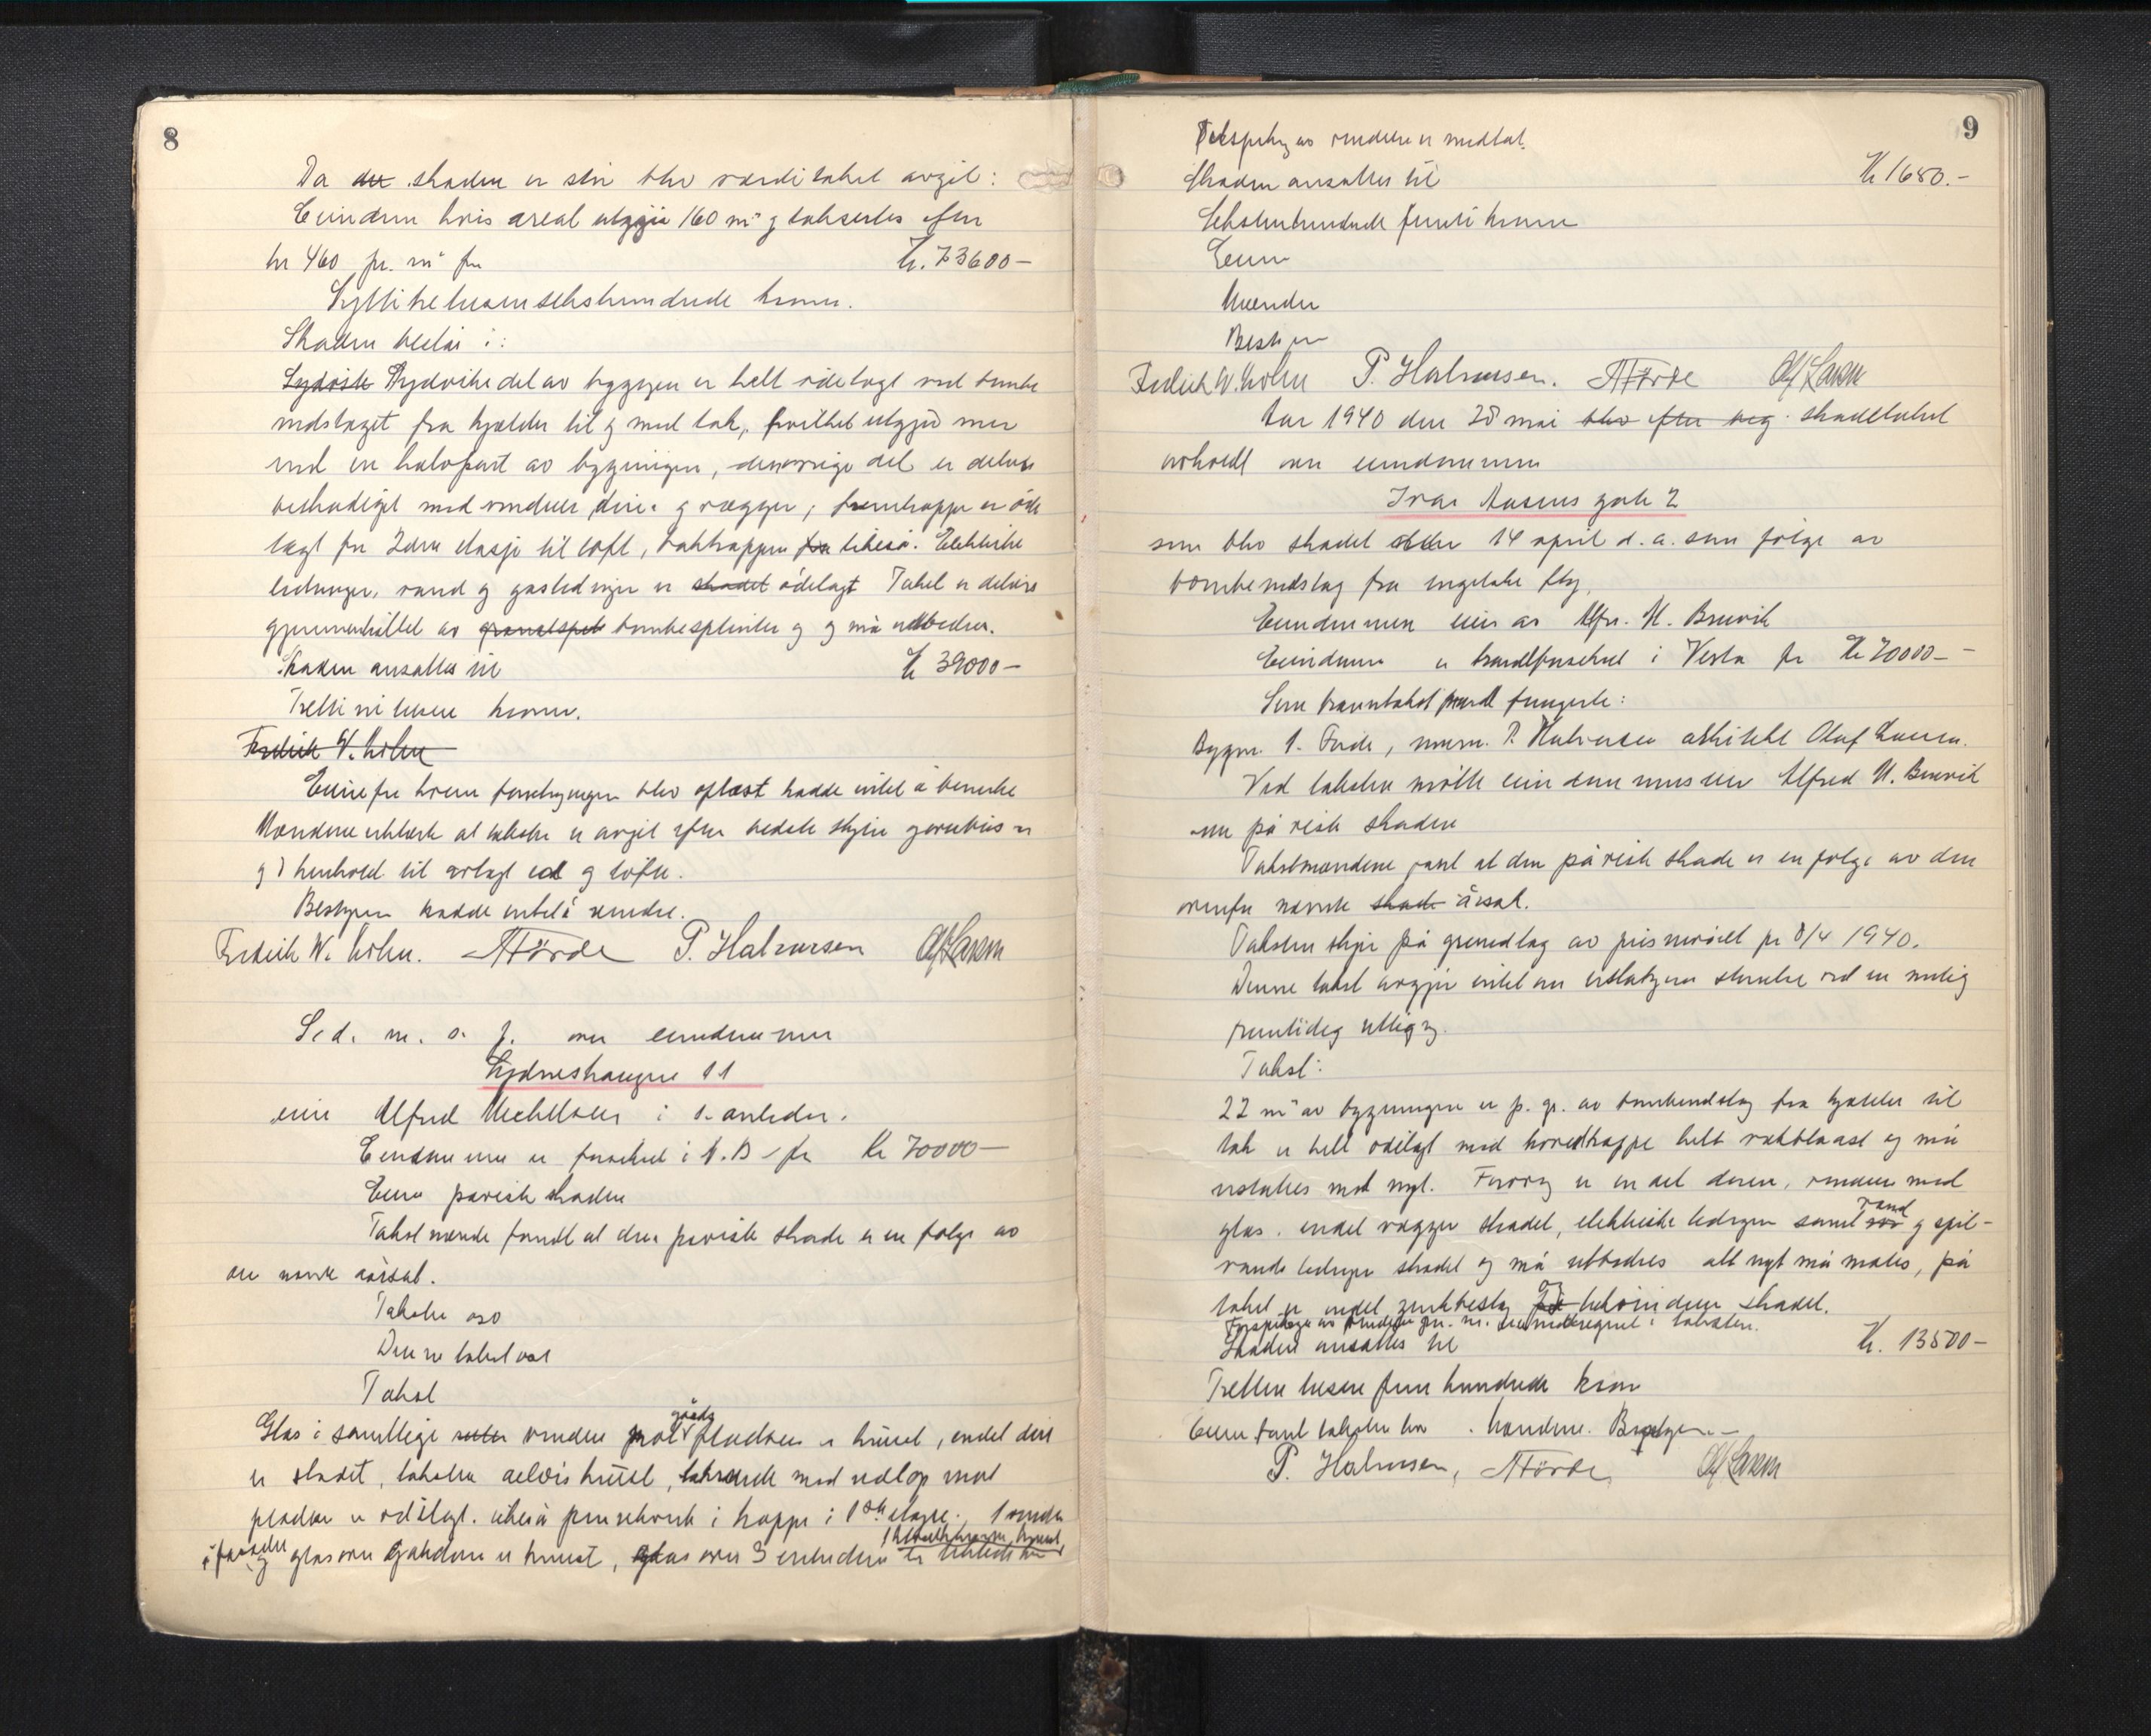 8
Da det skaden er stor blev værditakst avgit:
Eiendom hvis areal utgjør 160 m² og takseres efter
kr 460 pr. m² for Kr. 73600-
Syttitretusensekshundrede kroner.
Skaden består i:
Sydøstre Sydvestre del av bygningen er helt ødelagt ved bombe
nedslaget fra kjælder til og med tak, hvilket utgjør mer
end en halvpart av bygningen, den øvrige del er delvis
beskadiget med vinduer, dører og vægger, hovedtrappen er øde
lagt fra 2den etasje til loft, baktrappen fra likeså. Elektriske
ledninger, vand og gasledninger er skadet ødelagt Taket er delvis
gjennemhullet av granatsplint bombesplinter og og må utbedres.
Skaden ansættes til Kr 39000-
Tretti ni tusen kroner.
Fredrik W. Holm
Eieren for hvem forretningen blev oplæst hadde intet å bemerke
Mændene erklærte at taksten er avgit efter bedste skjøn og
og i henhold til avlagt ed og løfte.
Bestyrer hadde intet å endre.
Fredrik W. Holm. Førde P. Halvorsen Olaf Larsen
S. d. m. s. f. over eiendommen
Sydneshaugen 11
eier Alfred Mechlsen i 1. anledn.
Eiendommen er forsikret i N. B - for Kr 70000-
Eieren påviste skaden
Takstmænde fandt at den påviste skade er en følge av
ov nævnte årsak.
Taksten oso
Denne takst osv
Takst
Glas i samtlige ruter vinduer mot gårds pladsen er knust, endel dører
er skadet, taksten delvis knust, takrende med nedløp mot
pladsen er ødelagt. likeså panelverk i trappe i 1ste etasje. 1 vindu
i fasaden og glas over gatedøren er knust, glas over 3
9
av vinduer er medtat.
Skaden ansættes til Kr 1650.-
Sekstenhundrede femti kroner
Eieren
Mændene
Bestyrer
Fredrik W. Holm P. Halvorsen. Førde Olaf Larsen
Aar 1940 den 28 mai blev efter beg. skadetakst
avholdt over eiendommen
Ivar Aasens gate 2
som blev skadet den 14 april d. a. som følge av
bombenedslag fra engelske fly.
Eiendommen eies av Alfr. M. Brevik
Eiendommen er brandforsikret i Vesta for Kr 70000-
Som branntakstmænd fungerte:
Bygm. A. Førde, murm. P. Halvorsen arkitekt Olaf Larsen.
Ved taksten møtte eiendommens eier Alfred M. Brevik
som påviste skaden
Takstmændene fant at den påviste skade er en følge av den
ovenfor nævnte skade årsak.
Taksten skjer på grundlag av prisnivået pr 8/4 1940.
Denne takst avgjør intet om erstatningens størrelse ved en mulig
fremtidig utligng.
Takst:
22 m² av bygningen er p. gr. av bombenedslag fra kjælder til
tak er helt ødelagt med hovedtrappe helt vækblaast og må
erstattes med nyt. Forøvrig er en del dører, vinduer med
glas, endel vægger skadet, elektriske ledninger samt vand og spil-
vands ledninger skadet og må utbedres alt nyt må males, på
taket er endel zinkbeslag og takvinduer skadet.
Forspikring av vinduer m. m. er medregnet i taksten.
Skaden ansættes til Kr. 13500-
Tretten tusen fem hundrede kron
Eieren fant taksten . Mændene. Bestyrer. -
P. Halvorsen, Førde, Olaf Larsen